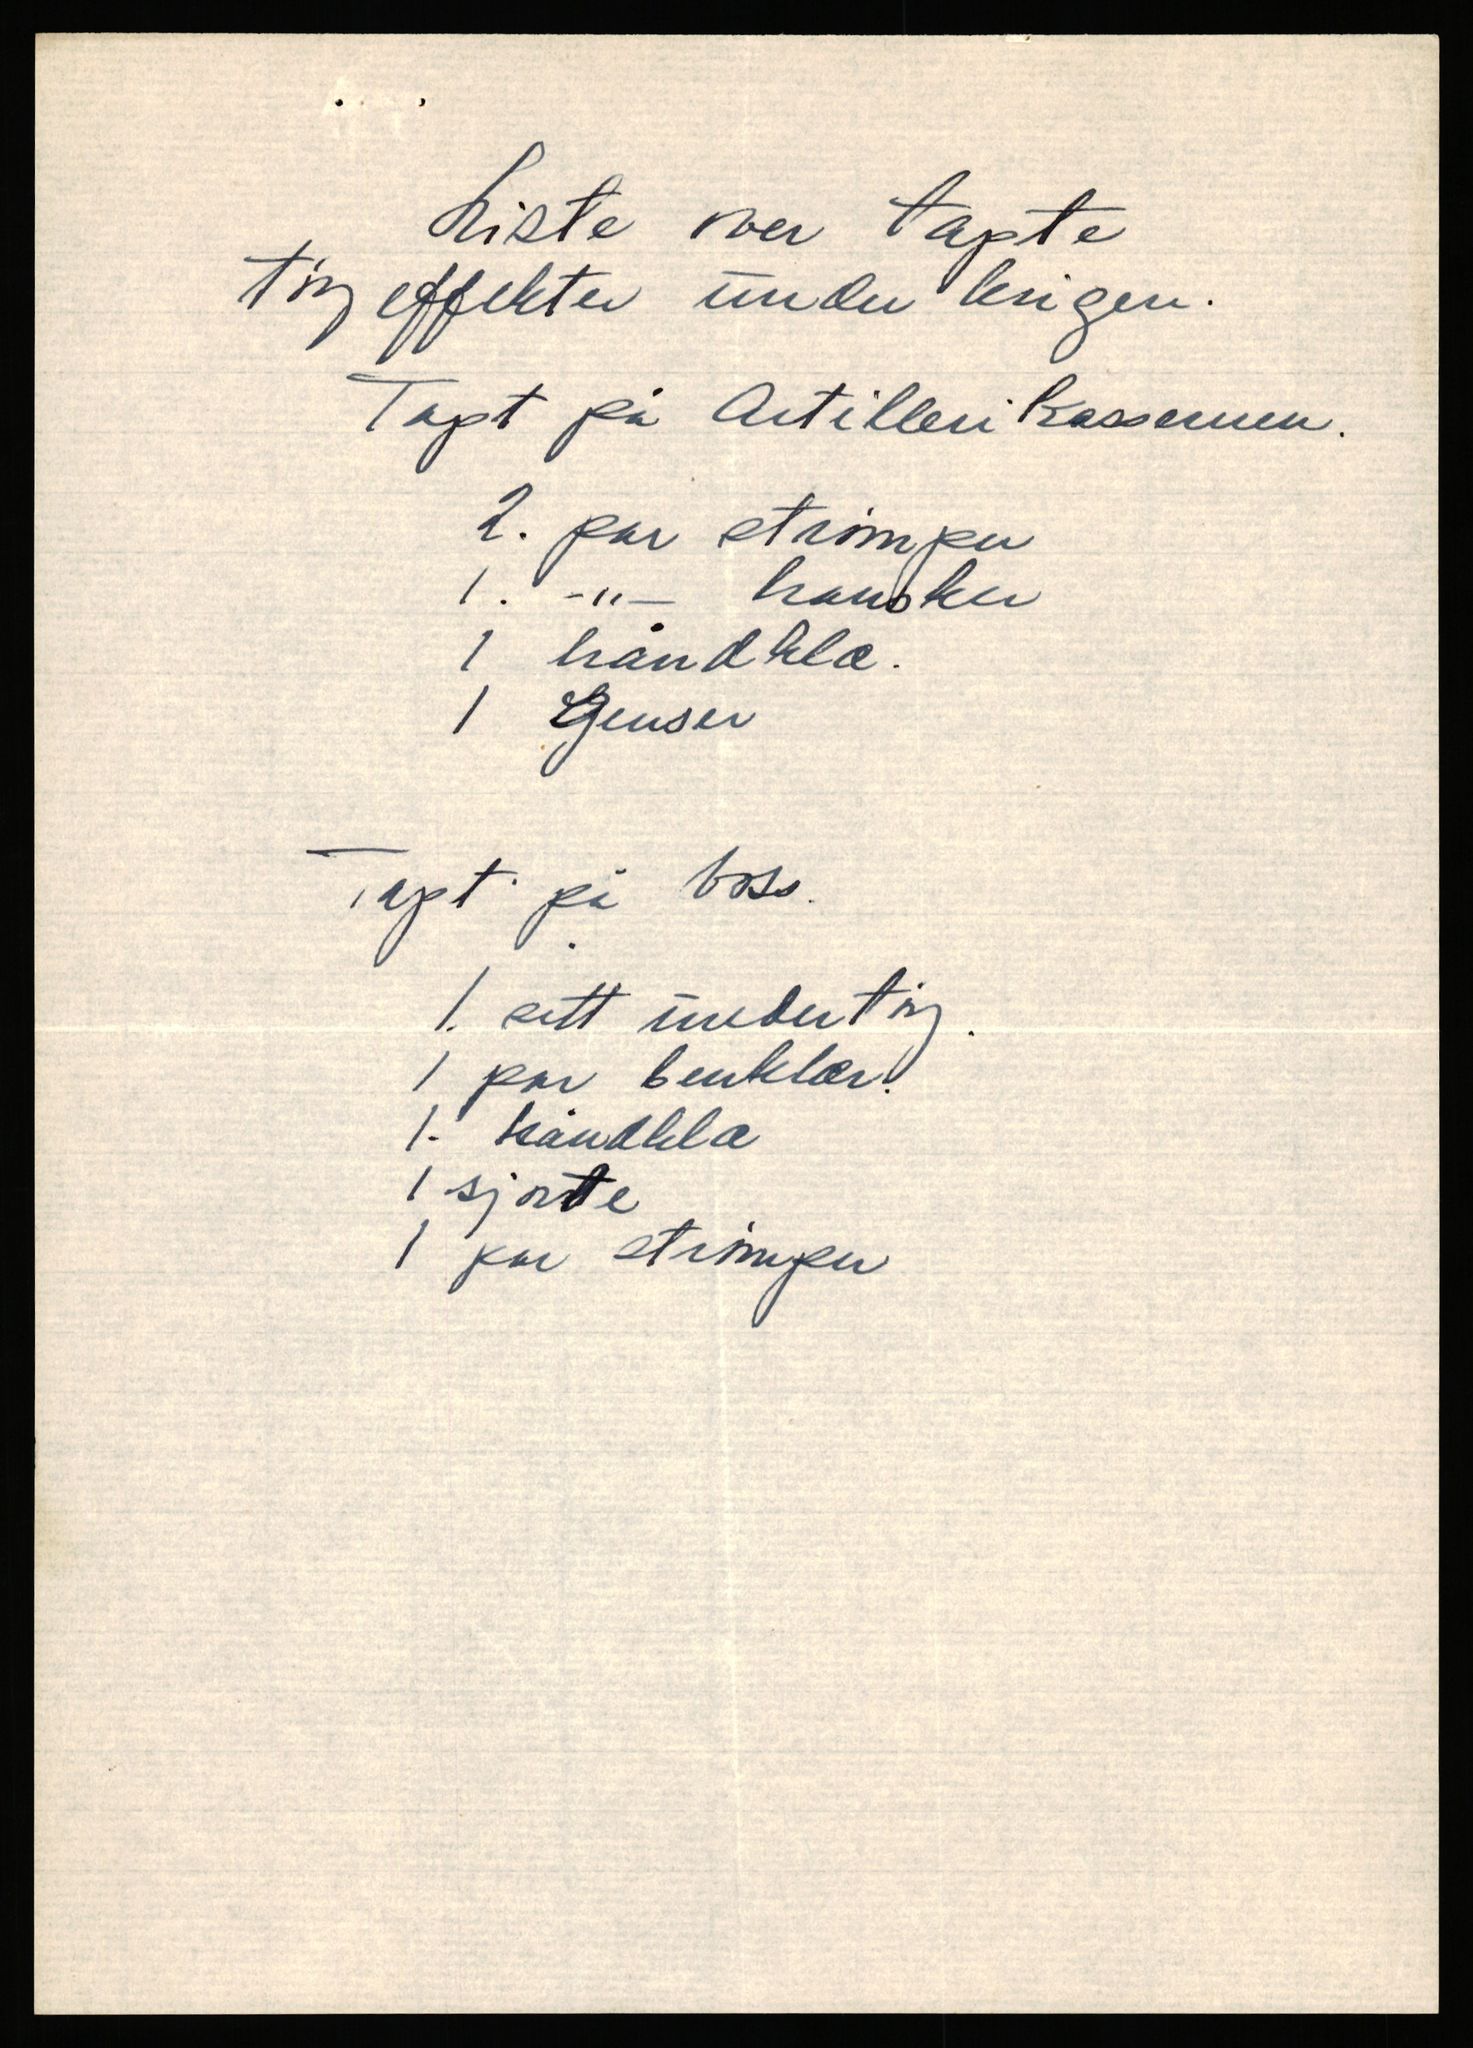 Liste over tapte
töyeffekter under krigen.
Tapt på Artillerikassernen.
2. par strömper
1. -"- hansker
1 håndkla.
1 Genser
Tapt på Voss.
1. sett undertöy.
1 par benklær.
1. håndkla
1 sjorte
1 par strömper